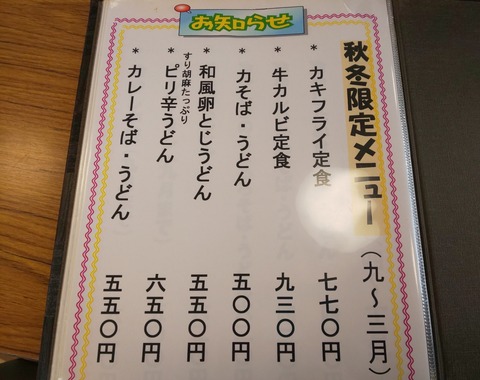 お知らせ
秋冬限定メニュー（九～三月）
＊カキフライ定食　七七〇円
＊牛カルビ定食　九三〇円
＊力そば・うどん　五〇〇円
＊和風卵とじうどん　五五〇円
すり胡麻たっぷり
＊ピリ辛うどん　六五〇円
＊カレーそば・うどん　五五〇円